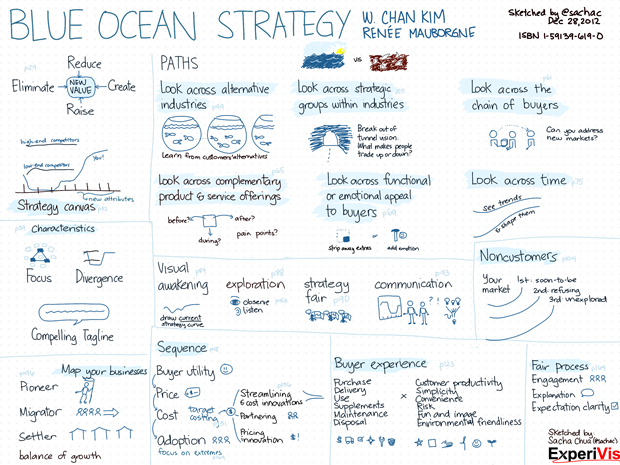 BLUE OCEAN STRATEGY
W. CHAN KIM
RENÉE MAUBORGNE
Sketched by @sachac
Dec 28, 2012
ISBN 1-59139-619-0
Reduce
Eliminate
NEW
VALUE
Create
Raise
high-end competitors
low-end competitors
You!
new attributes
Strategy canvas
PATHS
vs
Look across alternative
industries
Learn from customers' alternatives
Look across strategic
groups within industries
Break out of
tunnel vision.
What makes people
trade up or down?
Look across the
chain of buyers
Can you address
new markets?
Look across complementary
product & service offerings
before?
after?
during?
pain points?
Look across functional
or emotional appeal
to buyers
strip away extras
add emotion
Look across time
see trends
& shape them
Characteristics
Focus
Divergence
Compelling Tagline
Visual
awakening
draw current
strategy curve
exploration
observe
listen
strategy
fair
communication
Noncustomers
Your
market
1st: soon-to-be
2nd: refusing
3rd: unexplored
Map your businesses
Pioneer
Migrator
Settler
balance of growth
Sequence
Buyer utility
Price
Cost
target
costing
Adoption
focus on extremes
Streamlining
& cost innovations
Partnering
Pricing
innovation
Buyer experience
Purchase
Delivery
Use
Supplements
Maintenance
Disposal
x
Customer productivity
Simplicity
Convenience
Risk
Fun and image
Environmental friendliness
Fair process
Engagement
Explanation
Expectation clarity
Sketched by
Sacha Chua (@sachac)
ExperiVis